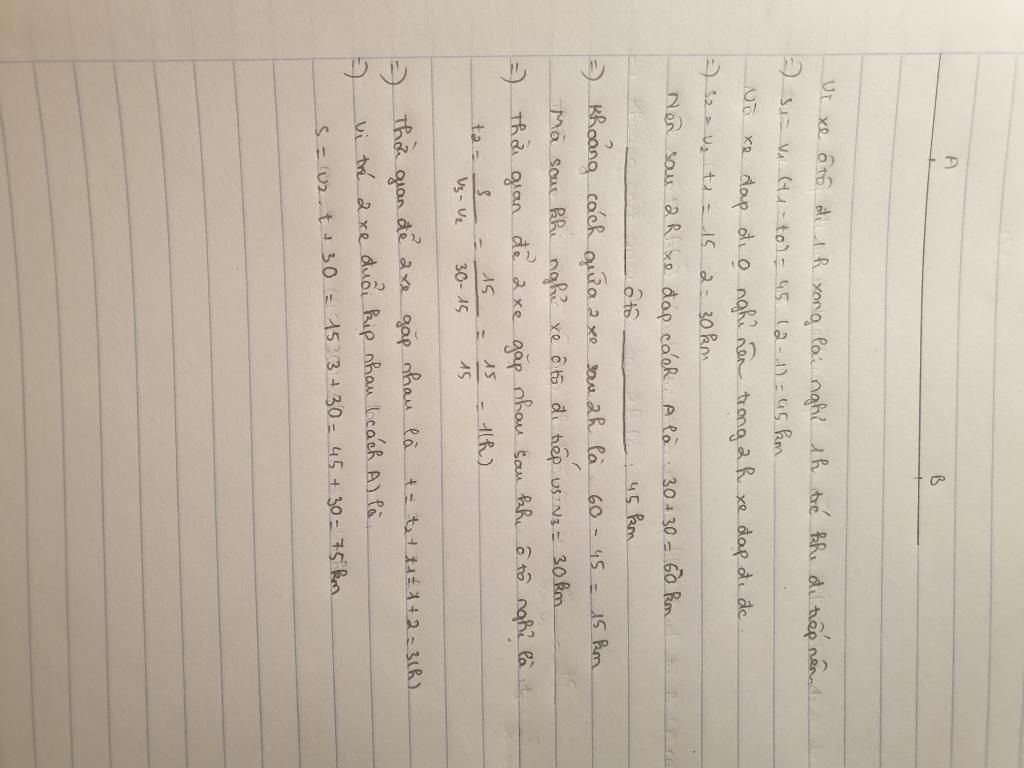 A B
Vì xe ô tô đi 1h xong lại nghỉ 1h trc khi đi tiếp nên
=) S1 = v1 (t1 - t0) = 45 (2 - 1) = 45 km
Vì xe đạp đi 0 nghỉ nên trong 2h xe đạp đi đc:
=) S2 = v2 . t1 = 15 . 2 = 30 km
Nên sau 2h xe đạp cách A là: 30 + 30 = 60 km
ô tô : 45 km
=) Khoảng cách giữa 2 xe sau 2h là: 60 - 45 = 15 km
Mà sau khi nghỉ xe ô tô đi tiếp với v3 = 30 km
=) Thời gian để 2 xe gặp nhau sau khi ô tô nghỉ là:
t2 = S / (v3 - v2) = 15 / (30 - 15) = 15 / 15 = 1(h)
=) Thời gian để 2 xe gặp nhau là t = t2 + t1 = 1 + 2 = 3(h)
=) Vị trí 2 xe đuổi kịp nhau (cách A) là:
S = v2 . t + 30 = 15 . 3 + 30 = 45 + 30 = 75 km